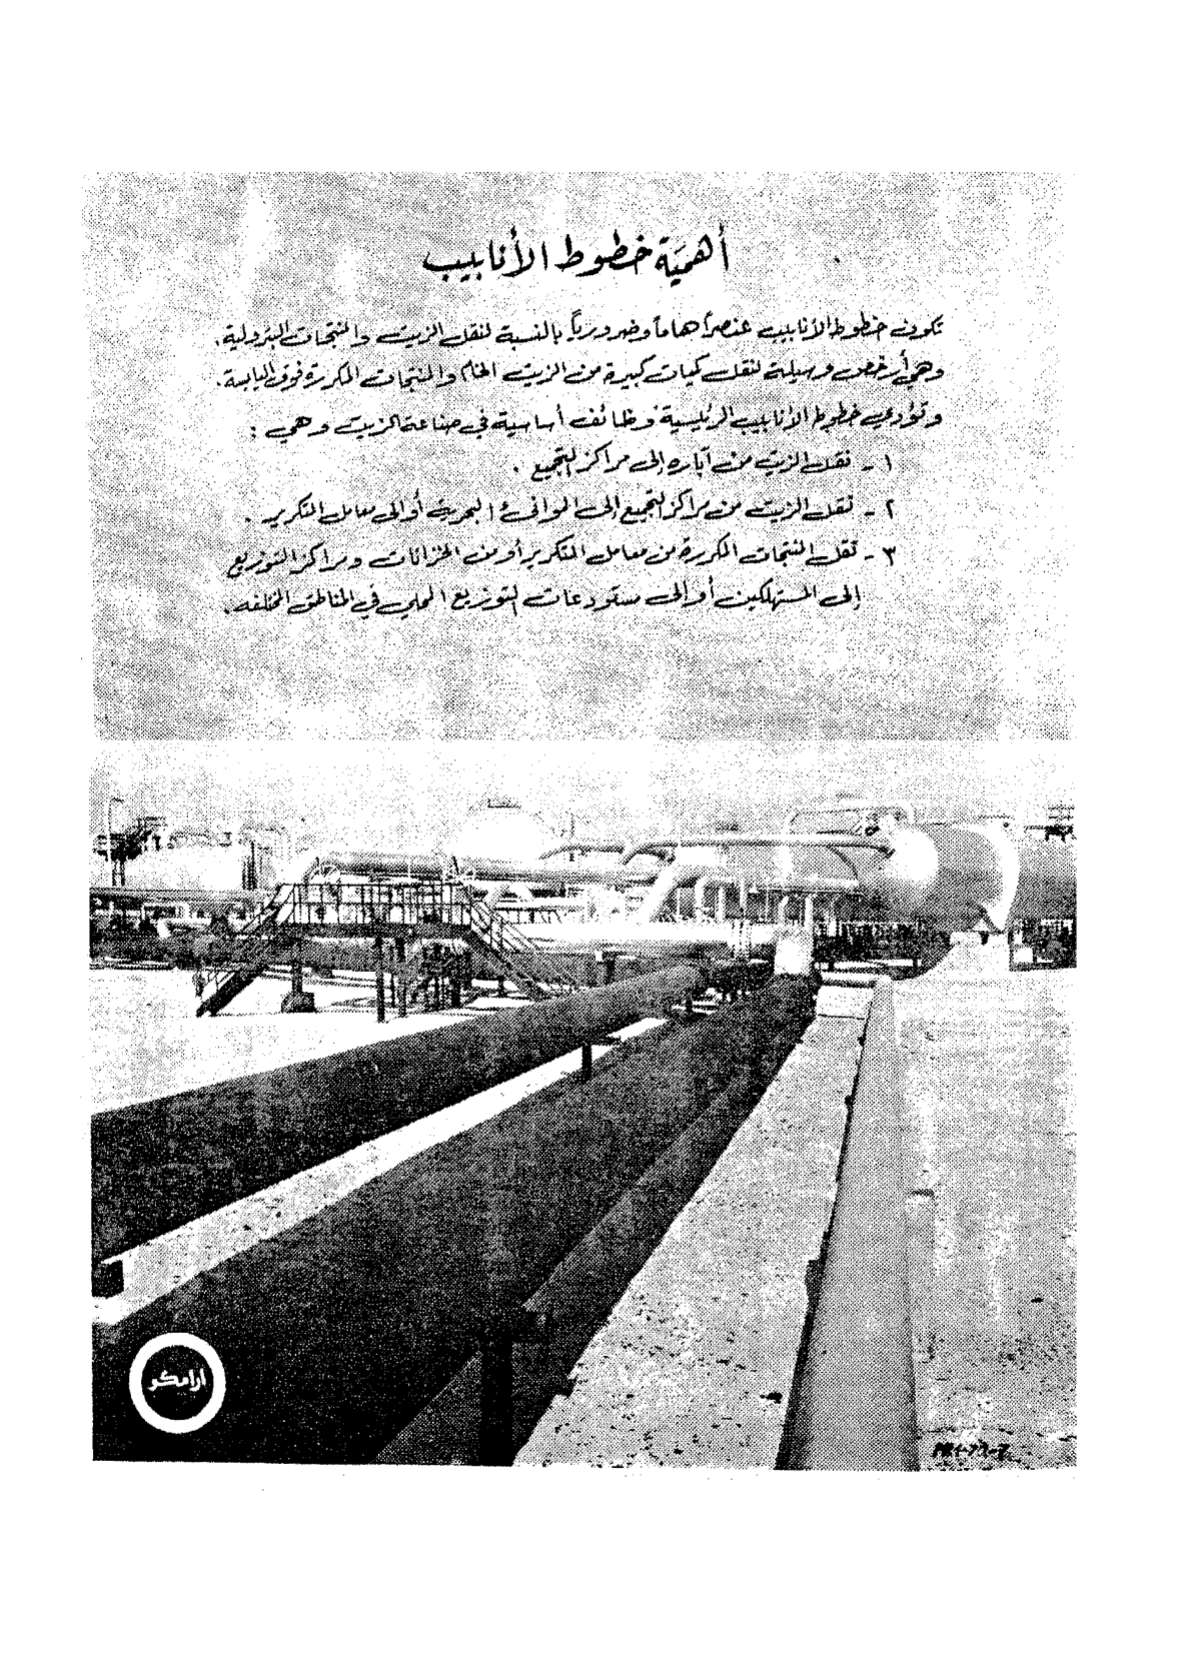 أهمية خطوط الأنابيب
تكون خطوط الأنابيب عنصراً هاماً وضرورياً بالنسبة لنقل الزيت والمنتجات البترولية.
وهي أرخص وسيلة لنقل كميات كبيرة من الزيت الخام والمنتجات المكررة فوق اليابسة.
وتؤدي خطوط الأنابيب الرئيسية وظائف أساسية في صناعة الزيت وهي :
١ - نقل الزيت من آباره إلى مراكز التجميع .
٢ - نقل الزيت من مراكز التجميع إلى الموانئ البحرية أو الى معامل التكرير .
٣ - نقل المنتجات المكررة من معامل التكرير أو من الخزانات ومراكز التوزيع
إلى المستهلكين أو الى مستودعات التوزيع المحلي في المناطق المختلفه .
ارامكو